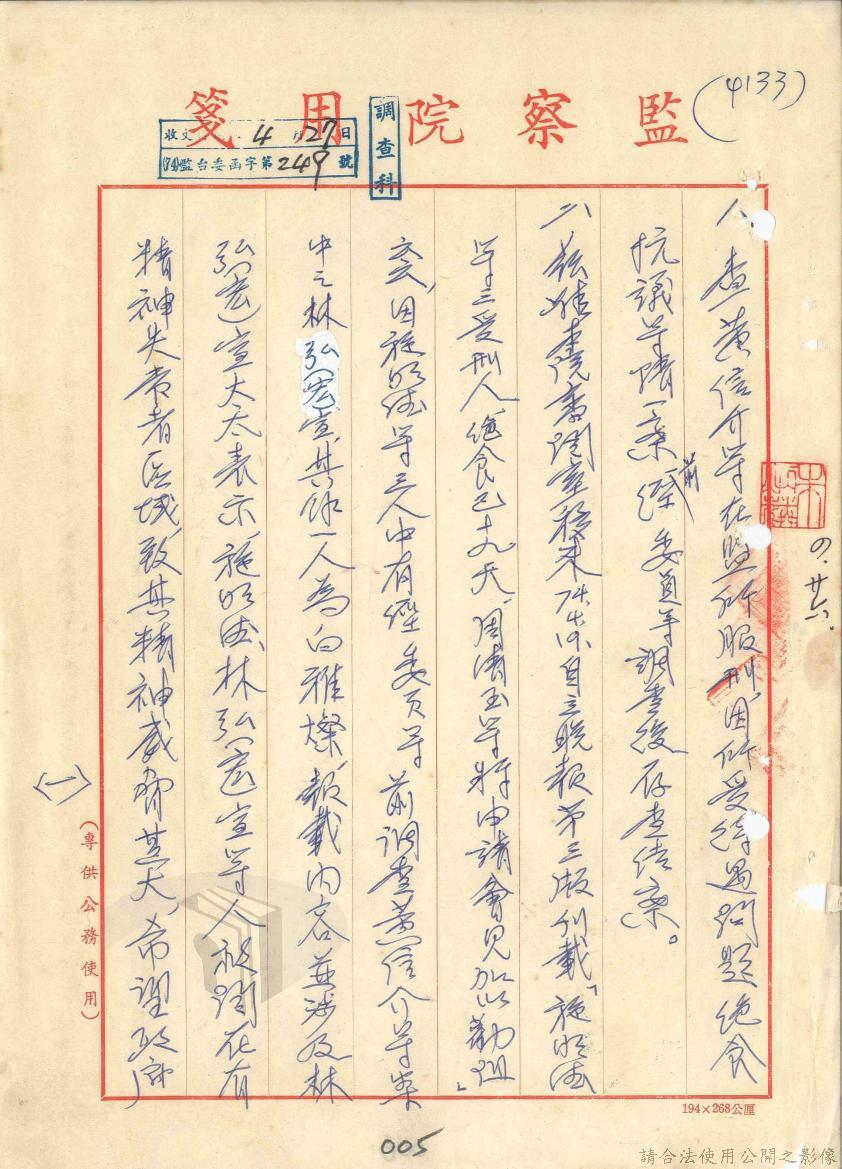 (4133)
監察院用箋
調查科
收文 4月27日
(74)監台委函字第249號
四.廿六.
一、查黃信介等在監所服刑，因所受待遇問題絕食
抗議等情一案，前經 委員等調查後存查結案。
二、茲准本院 室移來 自立晚報第三版刊載「施明德
等三受刑人絕食已十九天，周清玉等將申請會見加以勸阻」
，因施明德等三人中有經 委員等前調查黃信介等案
中之林弘宣，其餘一人為白雅燦，報載內容並涉及林
弘宣太太表示，施明德、林弘宣等人被關在有
精神失常者區域，致其精神威脅甚大，希望政府
〈一〉
(專供公務使用)
194×268公厘
005
請合法使用公開之影像